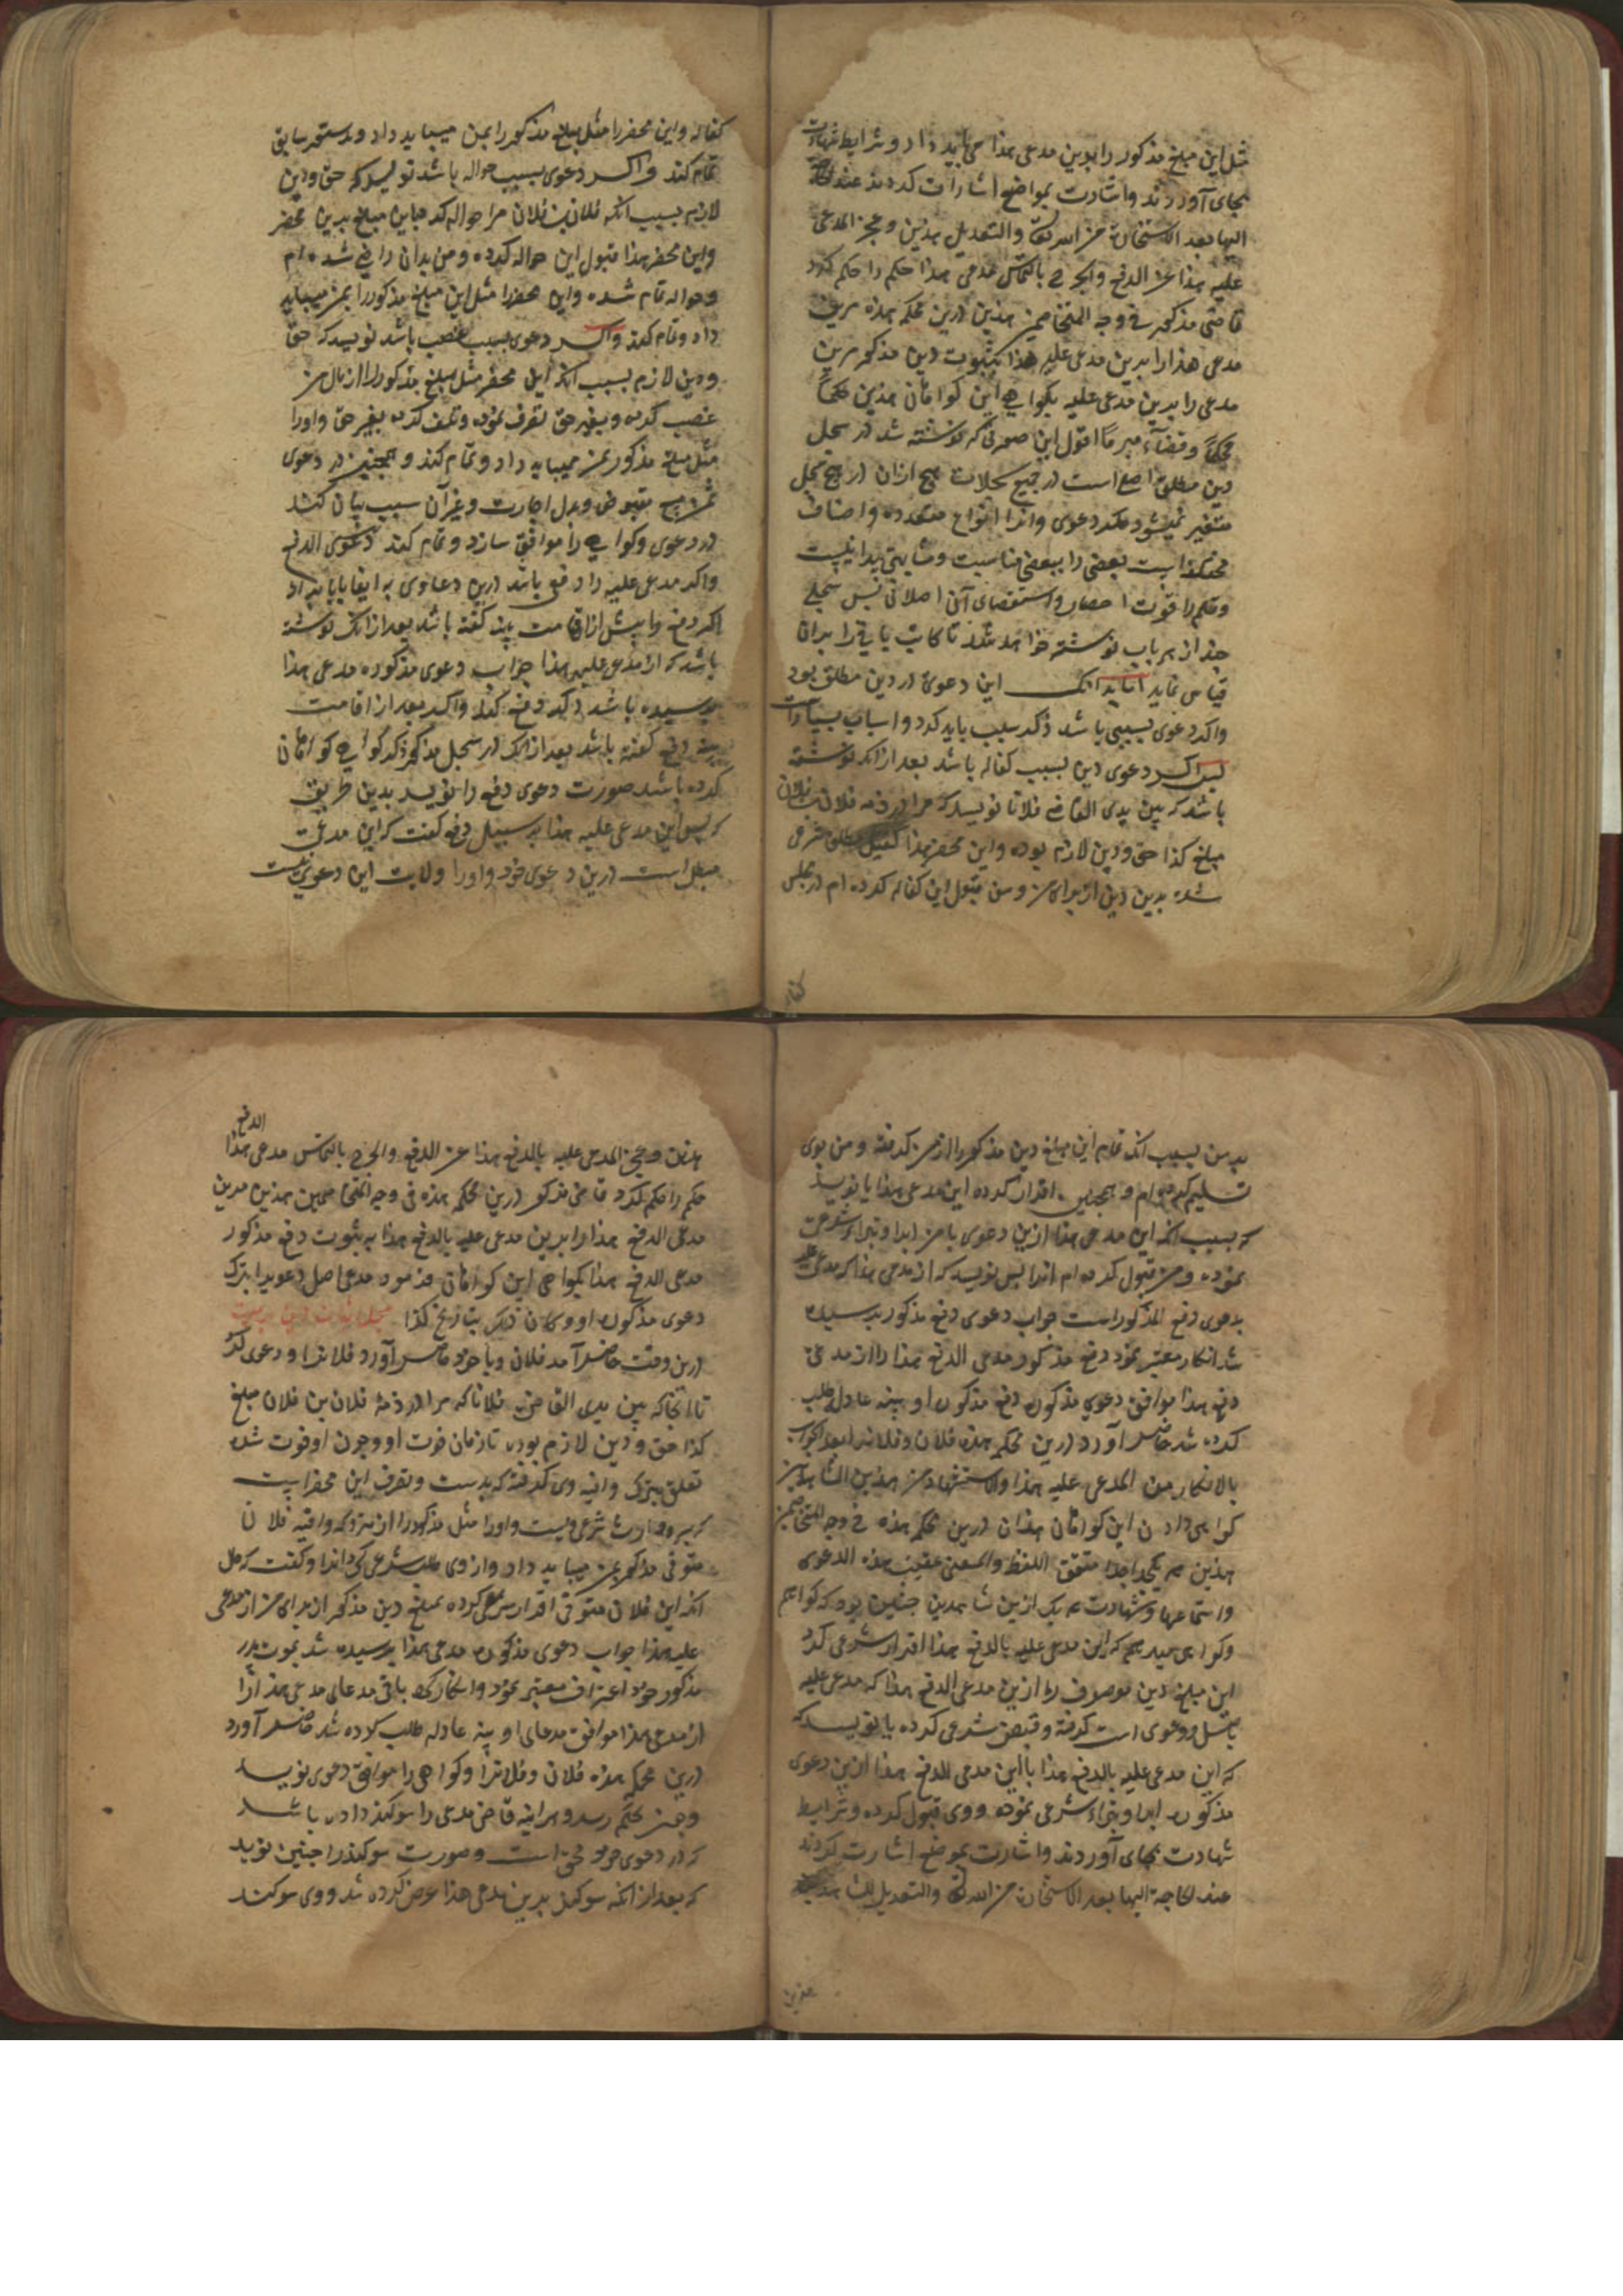 مثل این مبلغ مذکور را بدین مدعی هذا می باید داد و شرایط شهادت
بجای آوردند و اشارت بمواضع اشارات کردند عند الحاجة
الیها بعد الاستخارة من الله تعالی والتعدیل هذین و عجز المدعی
علیه هذا عن الدفع والجرح بالتماس مدعی هذا حکم را حکم کرد
قاضی مذکور فی وجه المتخاصمین هذین درین محکمه هذه مرین
مدعی هذا را بدین مدعی علیه هذا بثبوت دین مذکور مرین
مدعی را بدین مدعی علیه بگواهی این گواهان هذین حکماً
محکماً و قضآء مبرماً اقول این صورتی که نوشته شد در سجل
دین مطلق اصل است در جمیع سجلات هیچ ازان در هیچ سجل
متغیر نمیشود مگر دعوی و انرا انواع متعدده و اصناف
مختلفه است بعضی را ببعضی مناسبت و مشابهتی پیدا نیست
و قلم را قوت احصا و استقصای آن اصلا نی پس سجلی
چند از هر باب نوشته خواهد شد تا کاتب باقی را بران
قیاس نماید اما بدانک این دعوی در دین مطلق بود
و اگر دعوی بسببی باشد ذکر سبب باید کرد و اسباب بسیارست
پس اگر دعوی دین بسبب کفاله باشد بعد ازانکه نوشته
باشد که بین یدی القاضی فلانا نویسد که مرا در ذمه فلان بن فلان
مبلغ کذا حق و دین لازم بوده و این محضر هذا کفیل مطلق شرعی
شده بدین دین از برای من و من قبول این کفاله کرده ام در مجلس
کفاله
کفاله و این محضر را مثل مبلغ مذکور را بمن میباید داد و بدستور سابق
تمام کند و اگر دعوی بسبب حواله باشد نویسد که حق و دین
لازم بسبب انکه فلان بن فلان مرا حواله کرد باین مبلغ بدین محضر
و این محضر هذا قبول این حواله کرده و من بدان راضی شده ام
و حواله تمام شده و این محضر را مثل این مبلغ مذکور را بمن میباید
داد و تمام کند و اگر دعوی بسبب غصب باشد نویسد که حق
و دین لازم بسبب انکه این محضر مثل مبلغ مذکور را از مال من
غصب کرده و بغیر حق تصرف نموده و تلف کرده بغیر حق و اورا
مثل مبلغ مذکور بمن میباید داد و تمام کند و همچنین در دعوی
ثمن مبیع مقبوض و بدل اجارت و غیر آن سبب بیان کنند
در دعوی و گواهی را موافق سازد و تمام کند دعوی الدفع
و اگر مدعی علیه را دفع باشد درین دعاوی به ایفا یا به ابرا
اگر دفع را پیش از اقامت بینه گفته باشد بعد ازانک نوشته
باشد که از مدعی علیه هذا جواب دعوی مذکوره مدعی هذا
پرسیده باشد ذکر دفع کند و اگر بعد از اقامت
بینه دفع گفته باشد بعد ازانک در سجل مذکور ذکر گواهی گواهان
کرده باشد صورت دعوی دفع را نویسد بدین طریق
که پس این مدعی علیه هذا بر سبیل دفع گفت که این مدعی
مبطل است درین دعوی خود و اورا ولایت این دعوی نیست
بر من بسبب انکه تمام این مبلغ دین مذکور را از من گرفته و من بوی
تسلیم کرده ام و همچنین اقرار کرده این مدعی هذا یا نویسد
که بسبب انکه این مدعی هذا ازین دعوی با من ابرا و تبراء شرعی
نموده و من قبول کرده ام انرا پس نویسد که از مدعی هذا که مدعی علیه
بدعوی دفع المذکور است جواب دعوی دفع مذکور پرسیده
شد انکار معتبر نمود دفع مذکور مدعی الدفع هذا را از مدعی
دفع هذا موافق دعوی مذکوره دفع مذکوره او بینه عادله طلب
کرده شد حاضر آورد درین محکمه هذه فلان و فلانرا بعد الجواب
بالانکار من المدعی علیه هذا والاستشهاد من هذین الشاهدین
گواهی دادن این گواهان هذان درین محکمه هذه فی وجه المتخاصمین
هذین هر یکی اجدا متفق اللفظ والمعنی عقیب هذه الدعوی
و استماعها و شهادت هر یک ازین شاهدین چنین بود که گواهم
و گواهی میدهم که این مدعی علیه بالدفع هذا اقرار شرعی کرد
این مبلغ دین موصوف را ازین مدعی الدفع هذا که مدعی علیه
باصل دعوی است گرفته و قبض شرعی کرده یا نویسد که
که این مدعی علیه بالدفع هذا با این مدعی الدفع هذا ازین دعوی
مذکوره ابرا و تبراء شرعی نموده و وی قبول کرده و شرایط
شهادت بجای آوردند و اشارت بموضع اشارت کردند
عند الحاجة الیها بعد الاستخارة من الله تعالی والتعدیل للشاهدین
هذین
الدفع
هذین و عجز المدعی علیه بالدفع هذا عن الدفع والجرح بالتماس مدعی هذا
حکم را حکم کرد قاضی مذکور درین محکمه هذه فی وجه المتخاصمین هذین مرین
مدعی الدفع هذا را بدین مدعی علیه بالدفع هذا به ثبوت دفع مذکور
مدعی الدفع هذا بگواهی این گواهان و فرمود مدعی اصل دعوی را بترک
دعوی مذکوره او و کان ذلک بتاریخ کذا سجل اثبات دین بر میت
درین وقت حاضر آمد فلان و با خود حاضر آورد فلانرا و دعوی کرد
تا انجا که بین یدی القاضی فلانا که مرا در ذمهٔ فلان بن فلان مبلغ
کذا حق و دین لازم بوده تا زمان فوت او و چون او فوت شده
تعلق بترکهٔ وافیه وی گرفته که بدست و تصرف این محضر است
که پسر و وارث شرعی ویست و اورا مثل مذکور را از متروکه وافیه فلان
متوفی مذکور بمن میباید داد و از وی طلب شرعی کرد انرا و گفت که حال
انکه این فلان متوفی اقرار شرعی کرده بمبلغ دین مذکور از برای من از مدعی
علیه هذا جواب دعوی مذکوره مدعی هذا پرسیده شد بموت پدر
مذکور خود اعتراف معتبر نمود و انکار کرد باقی مدعای مدعی هذا را
از مدعی هذا موافق مدعای او بینه عادله طلب کرده شد حاضر آورد
درین محکمه هذه فلان و فلانرا و گواهی را موافق دعوی نویسد
و چون بحکم رسد و هرآینه قاضی مدعی را سوگند داده باشد
که در دعوی خود محق است و صورت سوگند را چنین نویسد
که بعد ازانکه سوگند بدین مدعی هذا عرض کرده شد و وی سوگند